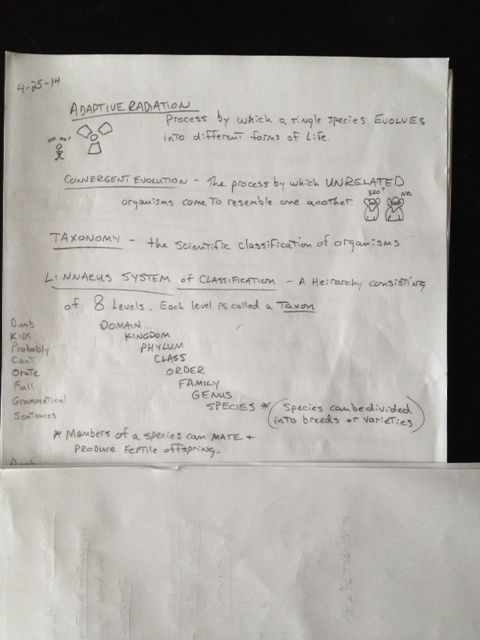 4-25-14
ADAPTIVE RADIATION
Process by which a single species EVOLVES
into different forms of Life.
CONVERGENT EVOLUTION - The process by which UNRELATED
organisms come to resemble one another
BRO?
NO.
TAXONOMY - the Scientific classification of organisms
LINNAEUS SYSTEM of CLASSIFICATION - A Heirarchy consisting
of 8 Levels. Each level is called a Taxon
Dumb DOMAIN
Kids KINGDOM
Probably PHYLUM
Can't CLASS
Orate ORDER
Full FAMILY
Grammatical GENUS
Sentences SPECIES * (Species can be divided
into breeds or varieties)
* Members of a species can MATE +
PRODUCE FERTILE offspring.